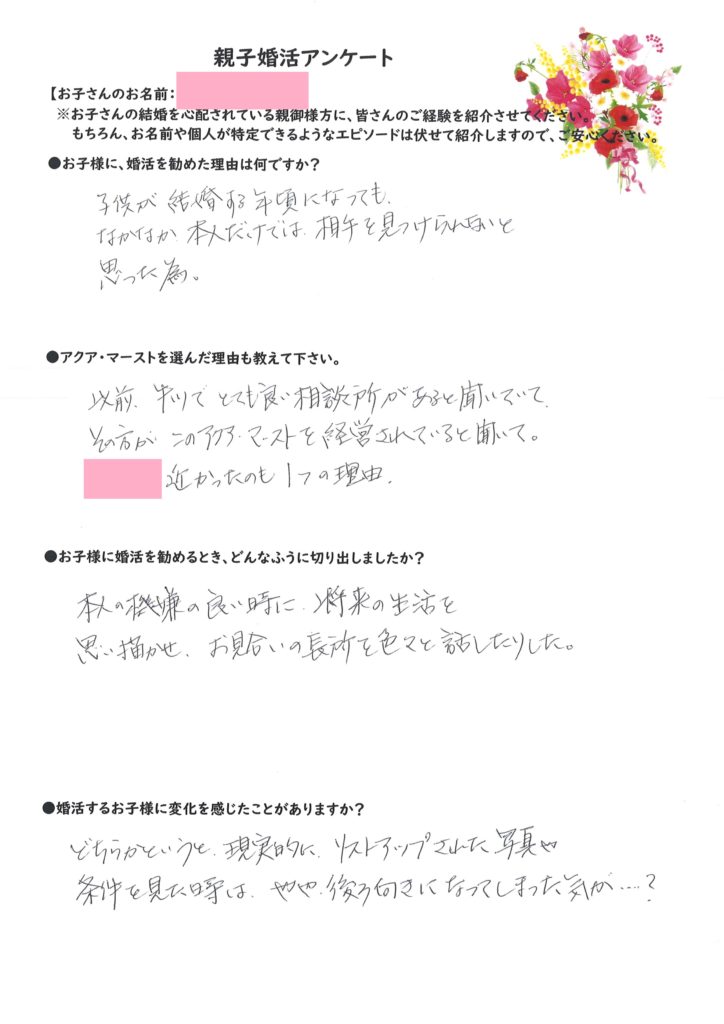 親子婚活アンケート
【お子さんのお名前：
※お子さんの結婚を心配されている親御様方に、皆さんのご経験を紹介させてください。
もちろん、お名前や個人が特定できるようなエピソードは伏せて紹介しますので、ご安心ください。
●お子様に、婚活を勧めた理由は何ですか？
子供が結婚する年頃になっても、
なかなか本人だけでは、相手を見つけられないと
思った為。
●アクア・マーストを選んだ理由も教えて下さい。
以前、でとても良い相談所があると聞いていて、
その方がこのアクア・マーストを経営されていると聞いて。
近かったのも1つの理由。
●お子様に婚活を勧めるとき、どんなふうに切り出しましたか？
本人の機嫌の良い時に、将来の生活を
思い描かせ、お見合いの長所を色々と話したりした。
●婚活するお子様に変化を感じたことがありますか？
どちらかというと、現実的に、リストアップされた写真や
条件を見た時は、やや、後ろ向きになってしまった気が….？